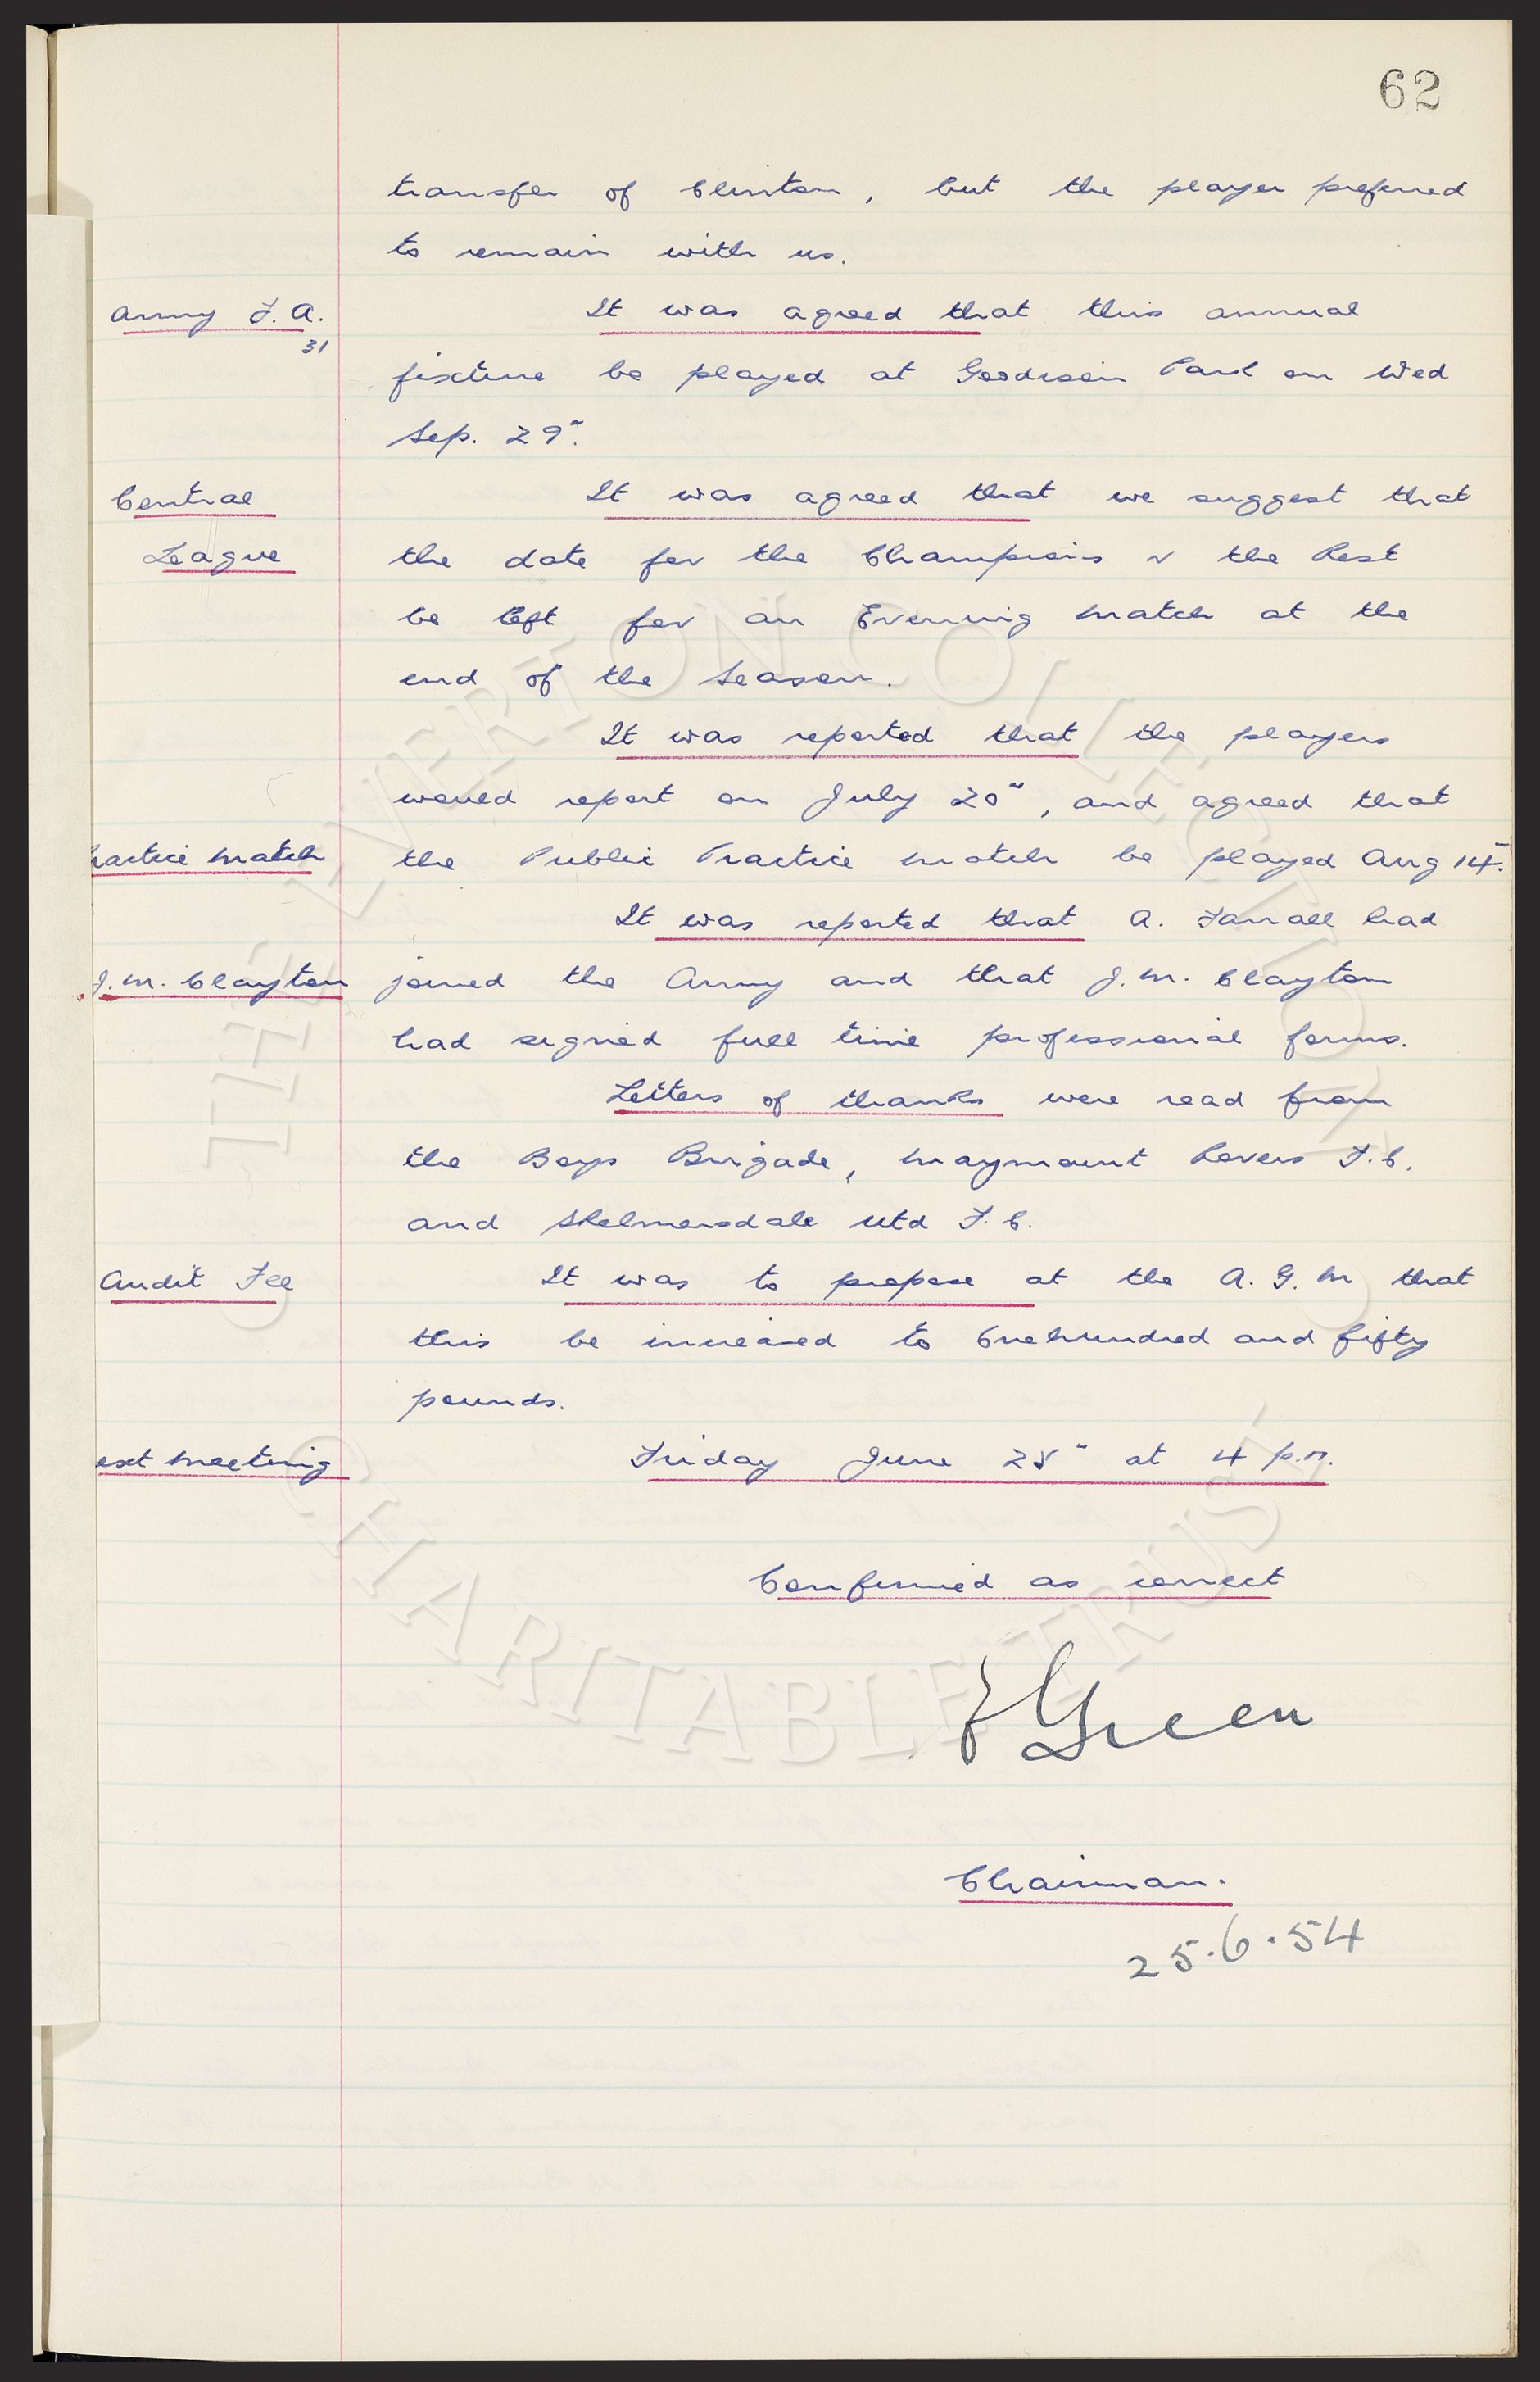 62
transfer of Clinton, but the player preferred
to remain with us.
Army F.A. It was agreed that this annual
31
fixture be played at Goodison Park on Wed
Sep. 29".
Central It was agreed that we suggest that
League the date for the Champions v the Rest
be left for an Evening match at the
end of the Season.
It was reported that the players
would report on July 20", and agreed that
ractice Match the Public Practice Match be played Aug 14".
It was reported that A. Farrall had
J.M. Clayton joined the Army and that J.M. Clayton
had signed full time professional forms.
Letters of thanks were read from
the Boys Brigade, Maymount Rovers F.C.
and Skelmersdale Utd F.C.
Audit Fee It was to propose at the A.G.M that
this be increased to Onehundred and fifty
pounds.
ext Meeting Friday June 25" at 4 p.m.
Confirmed as correct
E Green
Chairman.
25.6.54
THE EVERTON COLLECTION
CHARITABLE TRUST